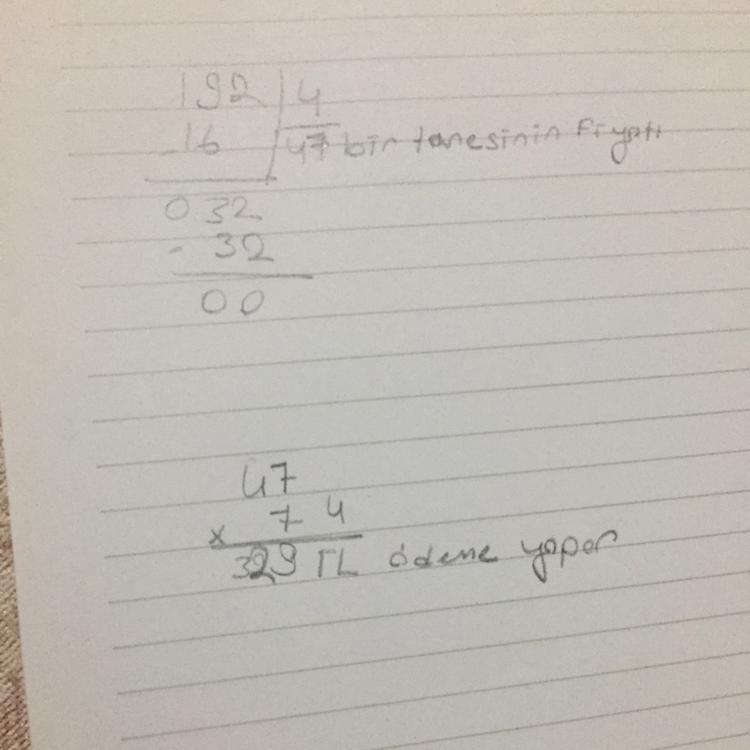 192 4
- 16 47 bir tanesinin fiyatı
032
- 32
00
47
x 7 4
329 TL ödeme yapar